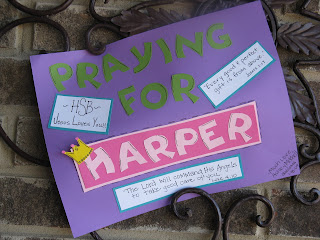 PRAYING
FOR
~HSB~
Jesus Loves You!
Every good & perfect
gift is from above
James 1:17
HARPER
The Lord will command his Angels
to take good care of you.